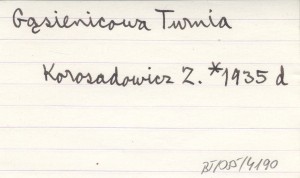 Gąsienicowa Turnia
Korosadowicz Z. *1935 d
BJ/OP/4190